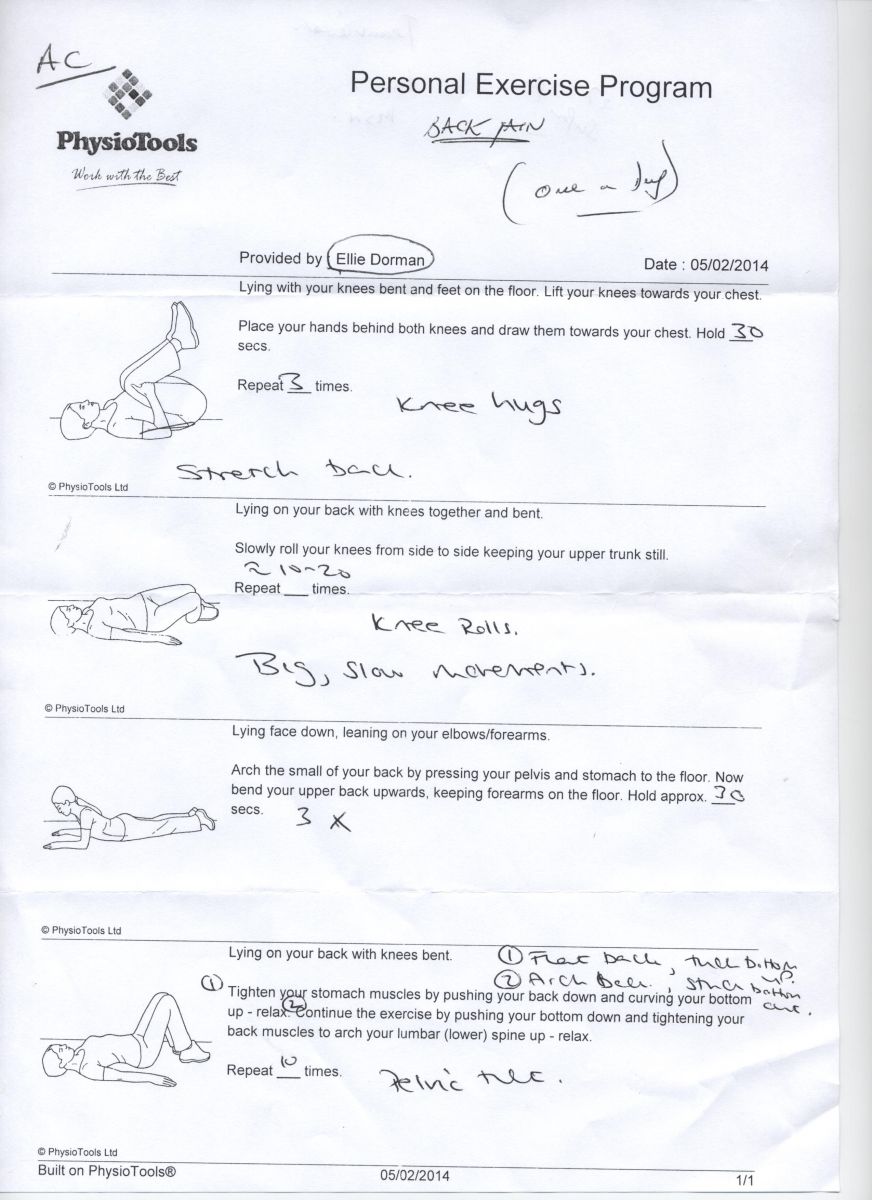 AC
PhysioTools
Work with the Best
Personal Exercise Program
BACK PAIN
(one a day)
Provided by Ellie Dorman
Date : 05/02/2014
Lying with your knees bent and feet on the floor. Lift your knees towards your chest.
Place your hands behind both knees and draw them towards your chest. Hold 30
secs.
Repeat 3 times.
Knee hugs
Stretch back.
© PhysioTools Ltd
Lying on your back with knees together and bent.
Slowly roll your knees from side to side keeping your upper trunk still.
~ 10-20
Repeat __ times.
Knee Rolls.
Big, slow movements.
© PhysioTools Ltd
Lying face down, leaning on your elbows/forearms.
Arch the small of your back by pressing your pelvis and stomach to the floor. Now
bend your upper back upwards, keeping forearms on the floor. Hold approx. 30
secs.
3 x
© PhysioTools Ltd
Lying on your back with knees bent.
① Flat back, tuck bottom up.
② Arch Back, stick bottom out.
① Tighten your stomach muscles by pushing your back down and curving your bottom
up - relax. ② Continue the exercise by pushing your bottom down and tightening your
back muscles to arch your lumbar (lower) spine up - relax.
Repeat 10 times.
Pelvic tilt.
© PhysioTools Ltd
Built on PhysioTools®
05/02/2014
1/1